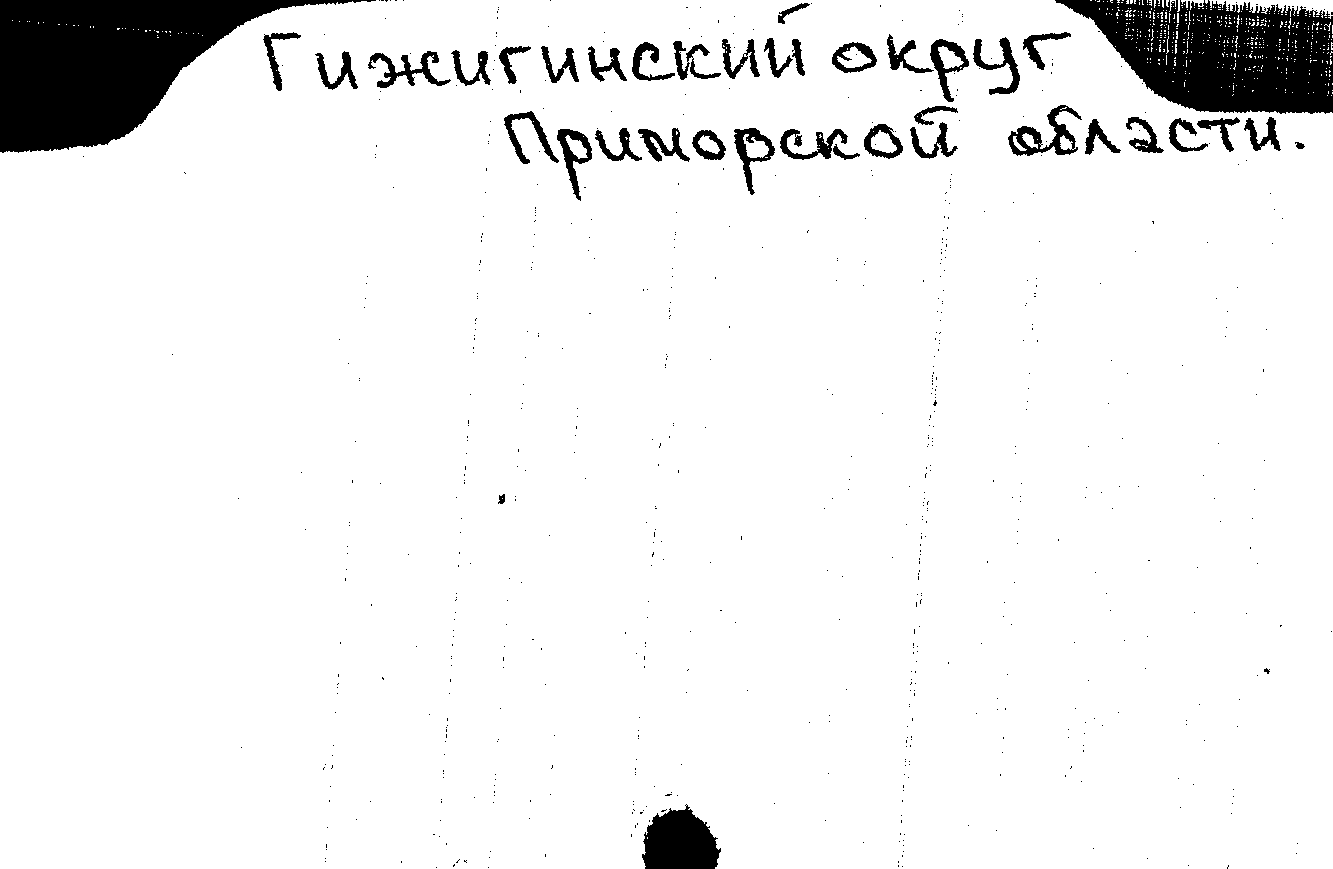 Гижигинский округ
Приморской области.